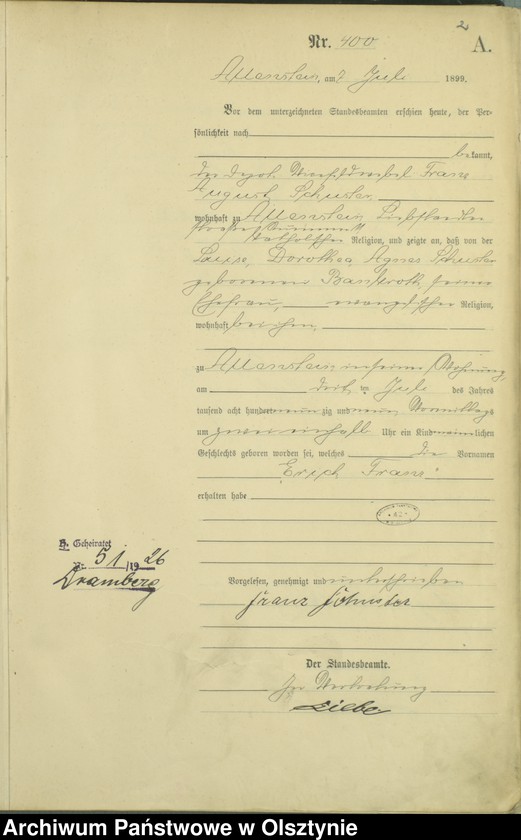 2
Nr. 400 A.
Allenstein, am 7 Juli 1899.
Vor dem unterzeichneten Standesbeamten erschien heute, der Per-
sönlichkeit nach
bekannt,
der Franz
August Schuster
wohnhaft zu Allenstein, Liebstaedter
straße
katholischer Religion, und zeigte an, daß von der
Luise, Dorothea Agnes Schuster
geborenen seiner
Ehefrau, evangelischer Religion,
wohnhaft bei ihm,
zu Allenstein in seiner Wohnung,
am Juli des Jahres
tausend acht hundert neunzig und neun Vormittags
um zwei einhalb Uhr ein Kind männlichen
Geschlechts geboren worden sei, welches die Vornamen
Erich Franz
erhalten habe
H. Geheiratet
Nr. 51/1926
Dramberg
Vorgelesen, genehmigt und unterschrieben
Franz Schuster
Der Standesbeamte.
In Vertretung
Archiwum Państwowe w Olsztynie